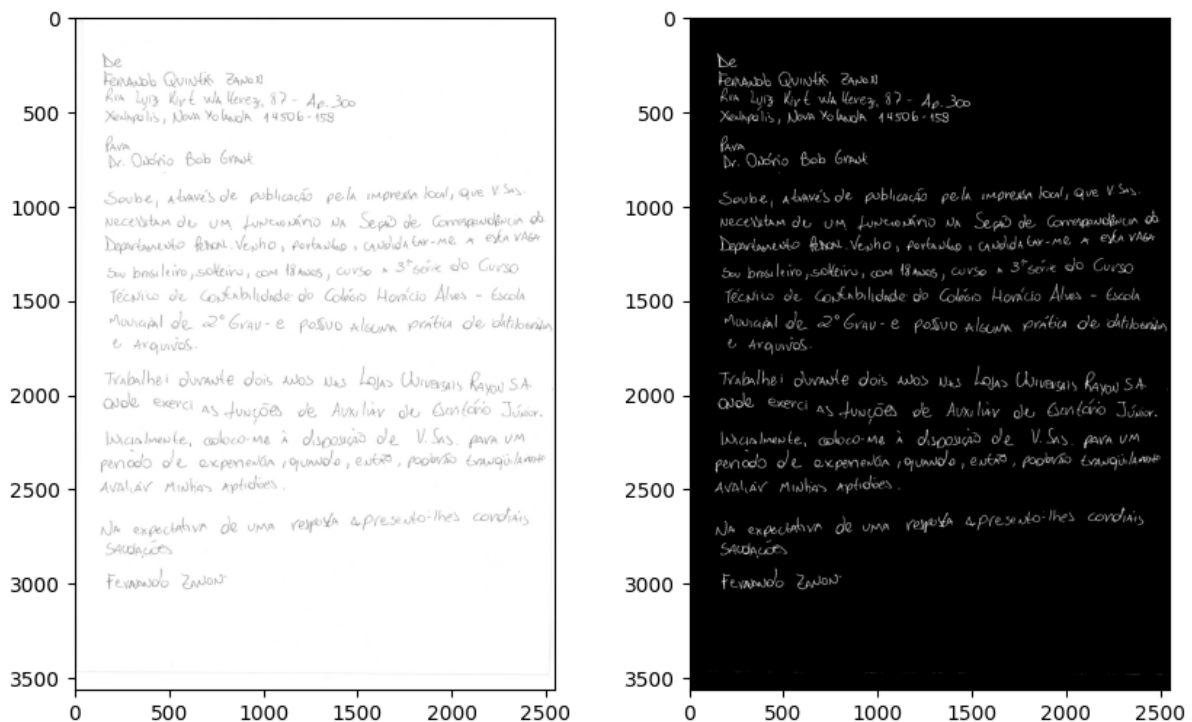 0
500
1000
1500
2000
2500
3000
3500
0 500 1000 1500 2000 2500
De
Fernando Quintês Zanon
Rua Luiz Kirt Wallerez, 87 - Ap. 300
Xenápolis, Nova Yolanda 14506-159
Para
Dr. Onório Bob Grant
Soube, através de publicação pela imprensa local, que V.Sas.
necessitam de um funcionário na Seção de Correspondência do
Departamento Pesoal. Venho, portanto, candidatar-me a esta vaga
Sou brasileiro, solteiro, com 18 anos, curso a 3ª série do Curso
Técnico de Contabilidade do Colégio Horácio Alves - Escola
Municipal de 2º Grau - e possuo alguma prática de
e arquivos.
Trabalhei durante dois anos nas Lojas Universais Rayon S.A.
onde exerci as funções de Auxiliar de Escritório Júnior.
Inicialmente, coloco-me à disposição de V.Sas. para um
período de experiência, quando, então, poderão tranqüilamente
avaliar minhas aptidões.
Na expectativa de uma resposta apresento-lhes cordiais
saudações
Fernando Zanon
0
500
1000
1500
2000
2500
3000
3500
0 500 1000 1500 2000 2500
De
Fernando Quintês Zanon
Rua Luiz Kirt Wallerez, 87 - Ap. 300
Xenápolis, Nova Yolanda 14506-159
Para
Dr. Onório Bob Grant
Soube, através de publicação pela imprensa local, que V.Sas.
necessitam de um funcionário na Seção de Correspondência do
Departamento Pesoal. Venho, portanto, candidatar-me a esta vaga
Sou brasileiro, solteiro, com 18 anos, curso a 3ª série do Curso
Técnico de Contabilidade do Colégio Horácio Alves - Escola
Municipal de 2º Grau - e possuo alguma prática de
e arquivos.
Trabalhei durante dois anos nas Lojas Universais Rayon S.A.
onde exerci as funções de Auxiliar de Escritório Júnior.
Inicialmente, coloco-me à disposição de V.Sas. para um
período de experiência, quando, então, poderão tranqüilamente
avaliar minhas aptidões.
Na expectativa de uma resposta apresento-lhes cordiais
saudações
Fernando Zanon